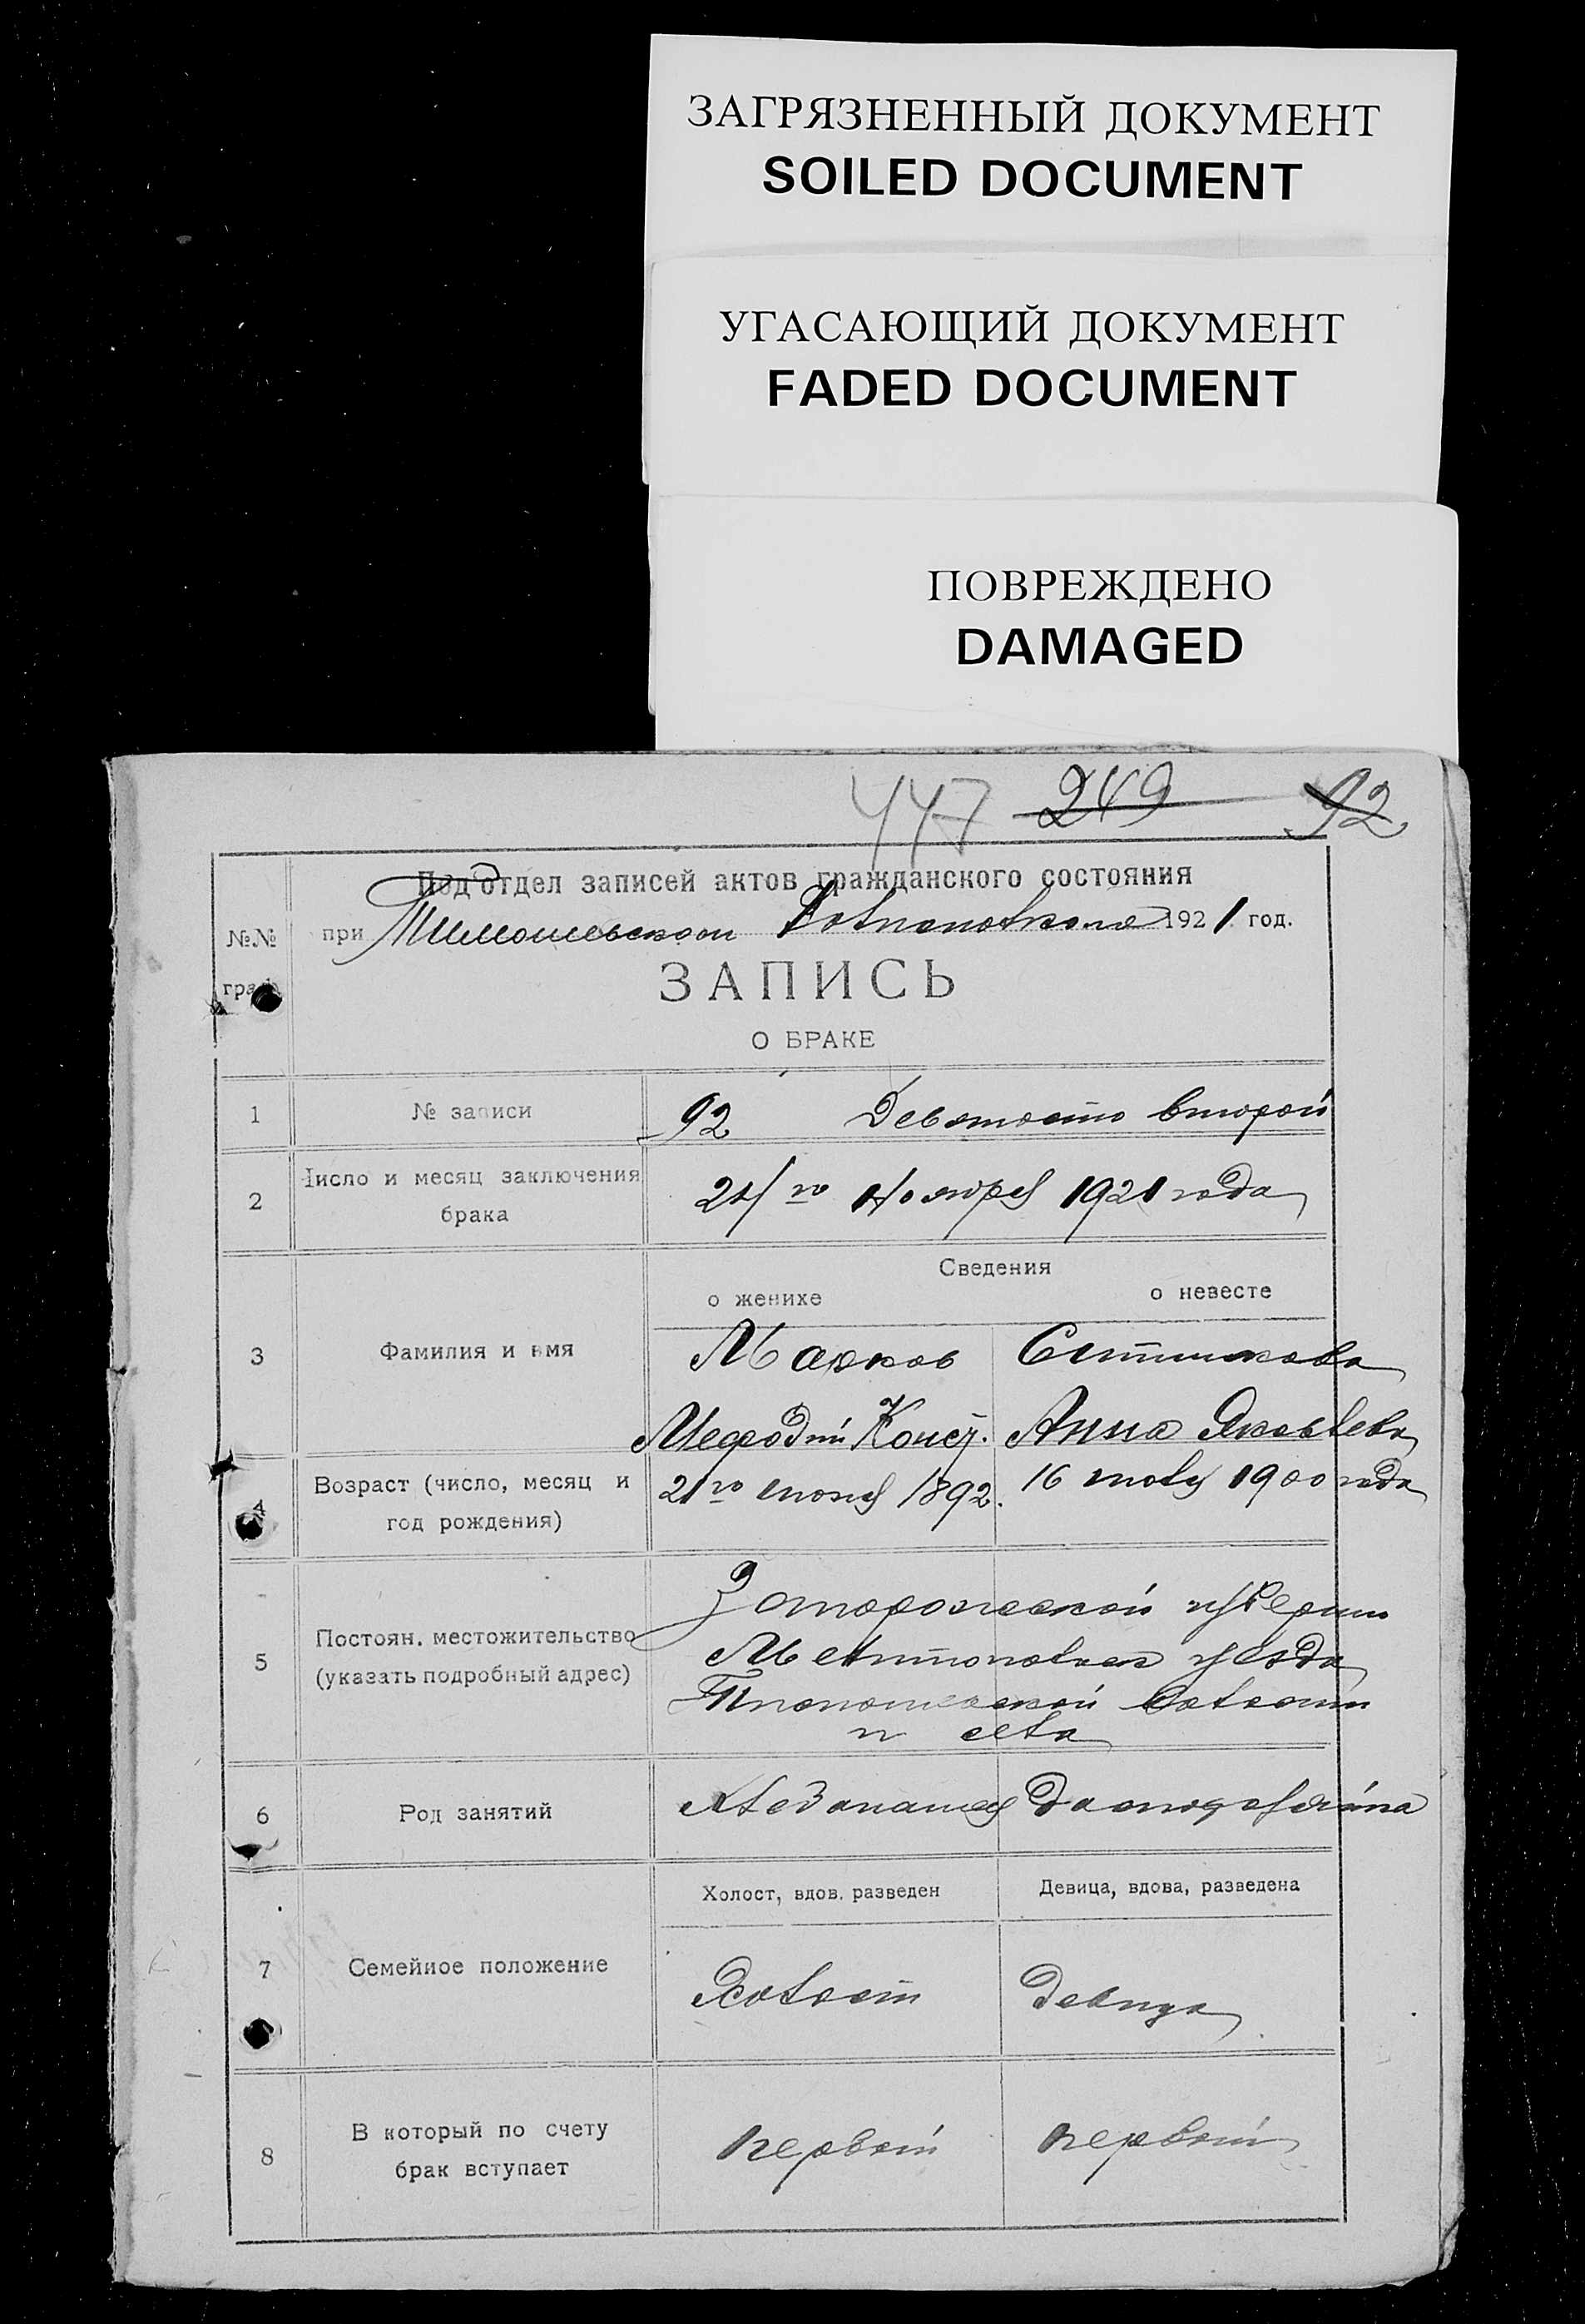 ЗАГРЯЗНЕННЫЙ ДОКУМЕНТ
SOILED DOCUMENT
УГАСАЮЩИЙ ДОКУМЕНТ
FADED DOCUMENT
ПОВРЕЖДЕНО
DAMAGED
447 249 92
Под'отдел записей актов гражданского состояния
№№ при 1921 год.
ЗАПИСЬ
О БРАКЕ
1 № записи 92 Девяносто второй
2 Число и месяц заключения брака 24го Ноября 1921 года
Сведения
о женихе о невесте
3 Фамилия и имя Марков Ситникова
Мефодий Конст. Анна Яковлева
4 Возраст (число, месяц и год рождения) 21го июня 1892. 16 июля 1900 года
5 Постоян. местожительство (указать подробный адрес) Запорожской губернии
Мелитопольского уезда
волости
и села
6 Род занятий Хлебопашец
Холост, вдов. разведен Девица, вдова, разведена
7 Семейное положение Холост Девица
8 В который по счету брак вступает первый первый